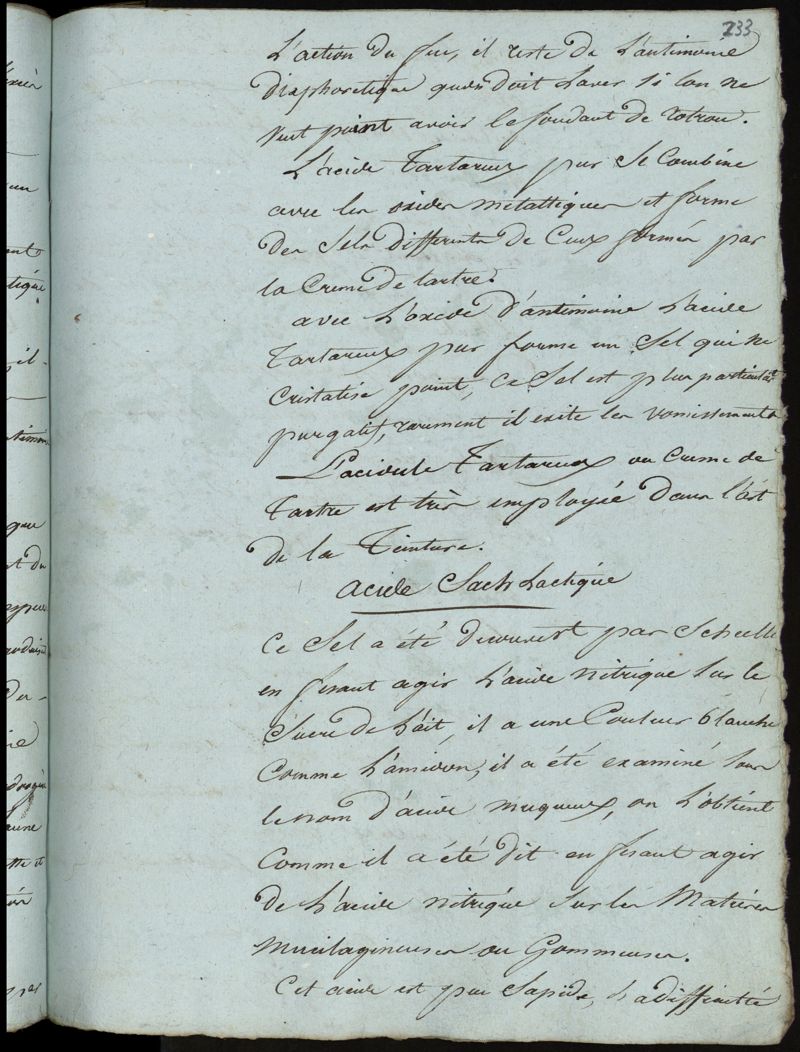 233
L'action du feu, il reste de L'antimoine
diaphoretique quon doit Laver si lon ne
veut point avoir le fondant de rotrou.
L'acide Tartareux pur Se Combine
avec les oxides métalliques et forme
des Sels differents de Ceux formés par
la Creme de tartre.
avec L'oxide d'antimoine L'acide
Tartareux pur forme un Sel qui ne
Cristalise point, Ce Sel est plus particulièrt
purgatif, rarement il exite les vomissements
L'acidule Tartareux ou Creme de
Tartre est très employée dans l'art
de la Teinture.
Acide Sach Lactique
Ce Sel a été decouvert par Scheelle
en fesant agir L'acide nitrique Sur le
Sucre de Lait, il a une Couleur blanche
Comme L'amidon, il a été examiné Sous
le nom d'acide muqueux, on L'obtient
Comme il a été dit en fesant agir
de L'acide nitrique Sur les Matières
Mucilagineuses ou Gommeuses.
Cet acide est peu Sapide, La difficulté